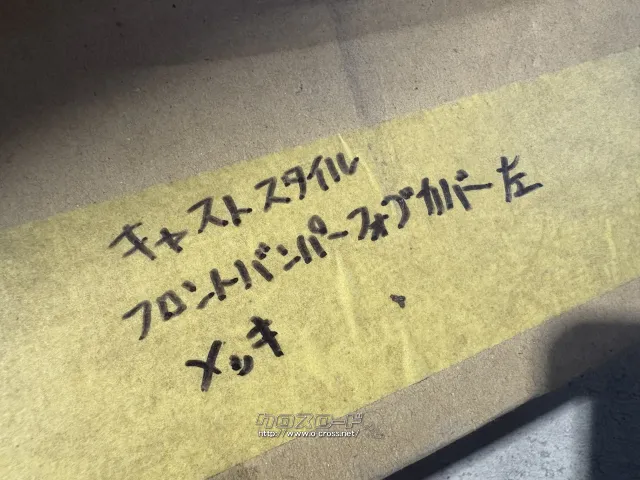 キャストスタイル
フロントバンパーフォブカバー左
メッキ
クロスロード
http://www.o-cross.net/